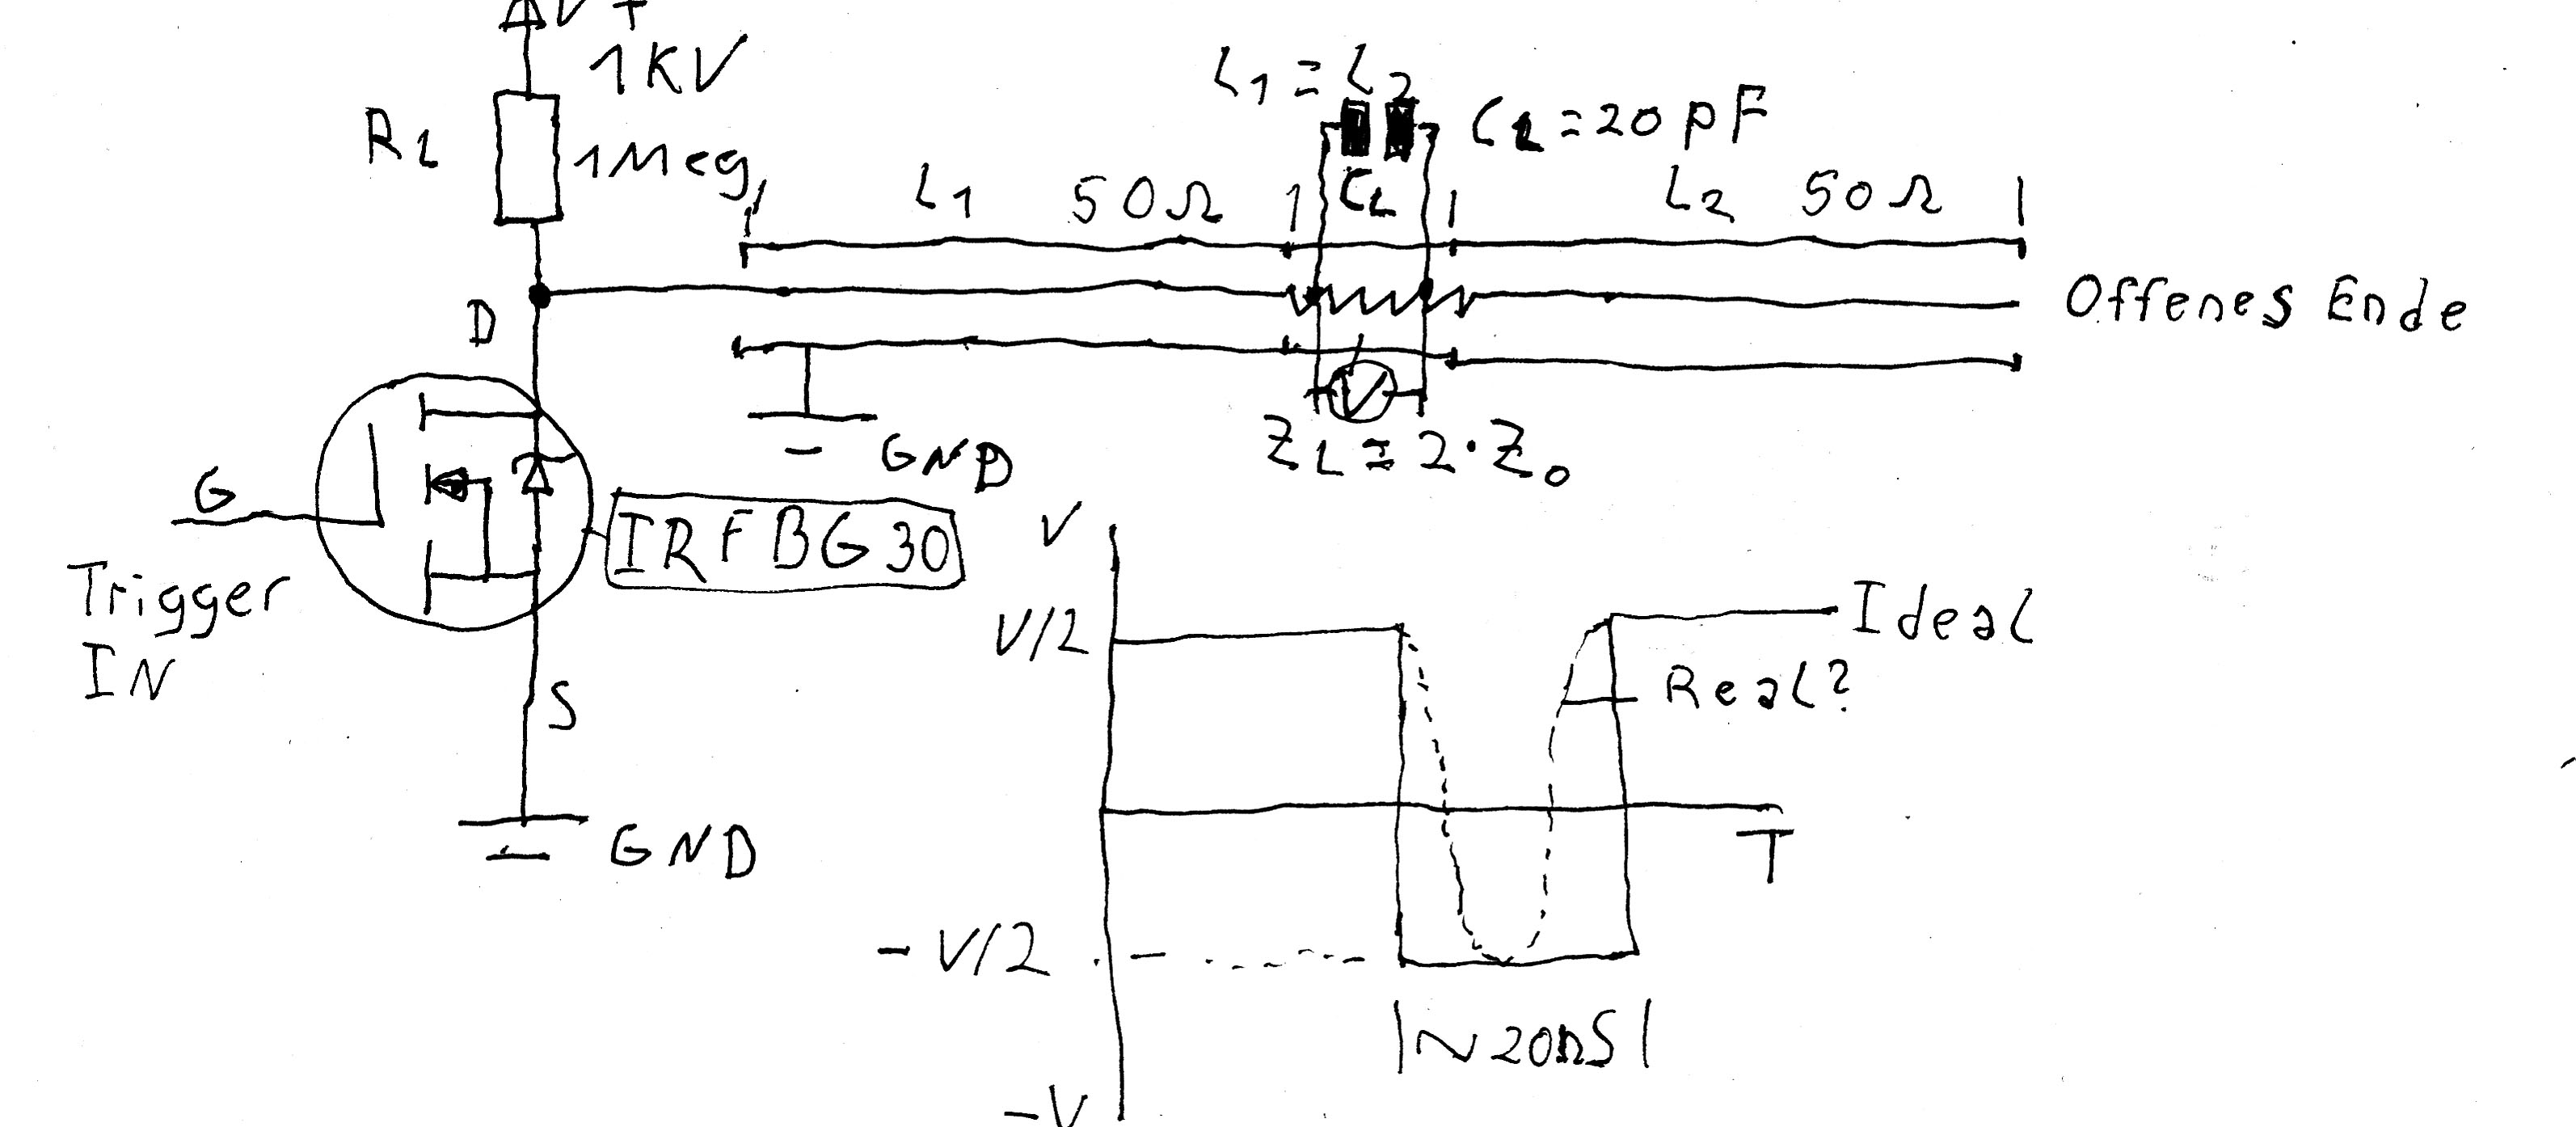 V+
1KV
R1
1Meg
L1 = L2
CL = 20 pF
CL
L1 50Ω
L2 50Ω
Offenes Ende
D
GND
V
ZL = 2·Z0
G
IRFBG30
Trigger
IN
S
GND
V
V/2
Ideal
Real?
T
-V/2
~20nS
-V